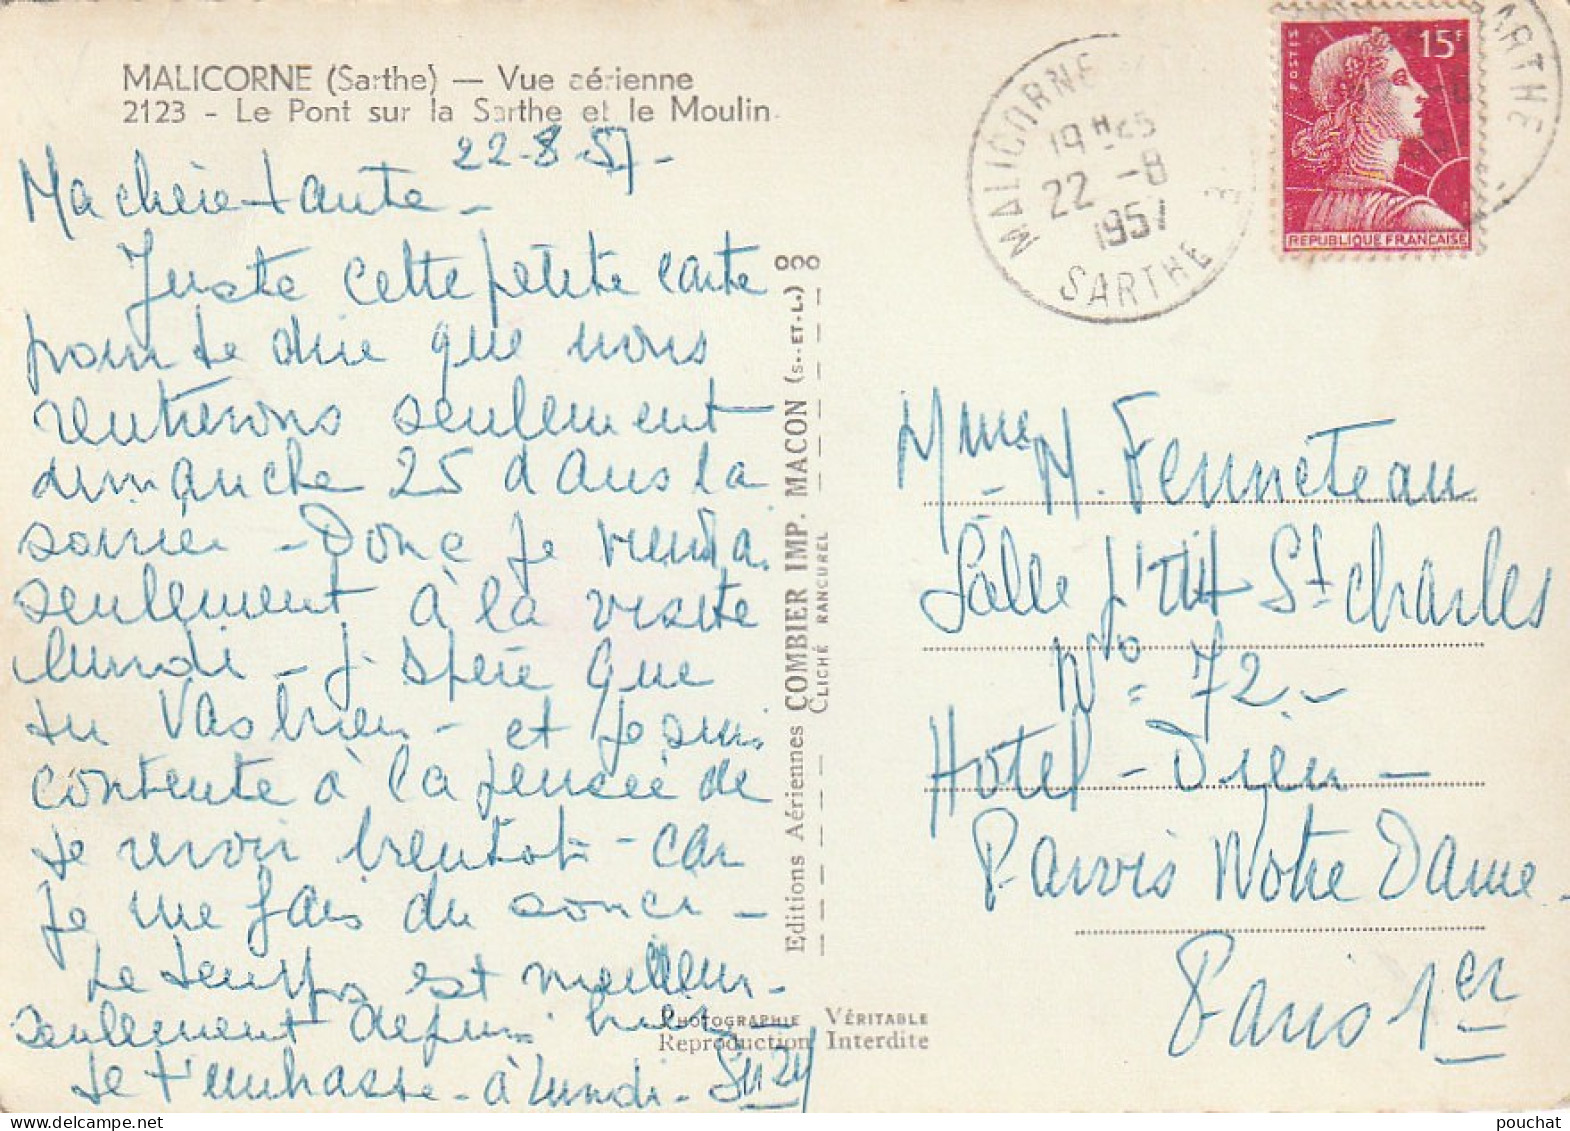 MALICORNE (Sarthe) — Vue aérienne
2123 - Le Pont sur la Sarthe et le Moulin
22-8-57-
Ma chérie tante -
Juste cette petite carte
pour te dire que nous
rentrerons seulement
dimanche 25 dans la
soirée - Donc je viendrai
seulement à la visite
lundi - j'espère que
tu vas bien - et je suis
contente à la pensée de
te revoir bientôt - car
je me fais du souci -
Le temps est meilleur -
seulement depuis hier -
Je t'embrasse - à lundi - Suzy
Editions Aériennes COMBIER IMP. MACON (S.-ET-L.)
CLICHÉ RANCUREL
PHOTOGRAPHIE VÉRITABLE
Reproduction Interdite
MALICORNE
19H45
22 -8
1957
SARTHE
POSTES
15F
REPUBLIQUE FRANÇAISE
SARTHE
Mme M. Fenneteau
Salle St Charles
No = 72 -
Hotel - Dieu -
Parvis Notre Dame -
Paris 1er
pouchat